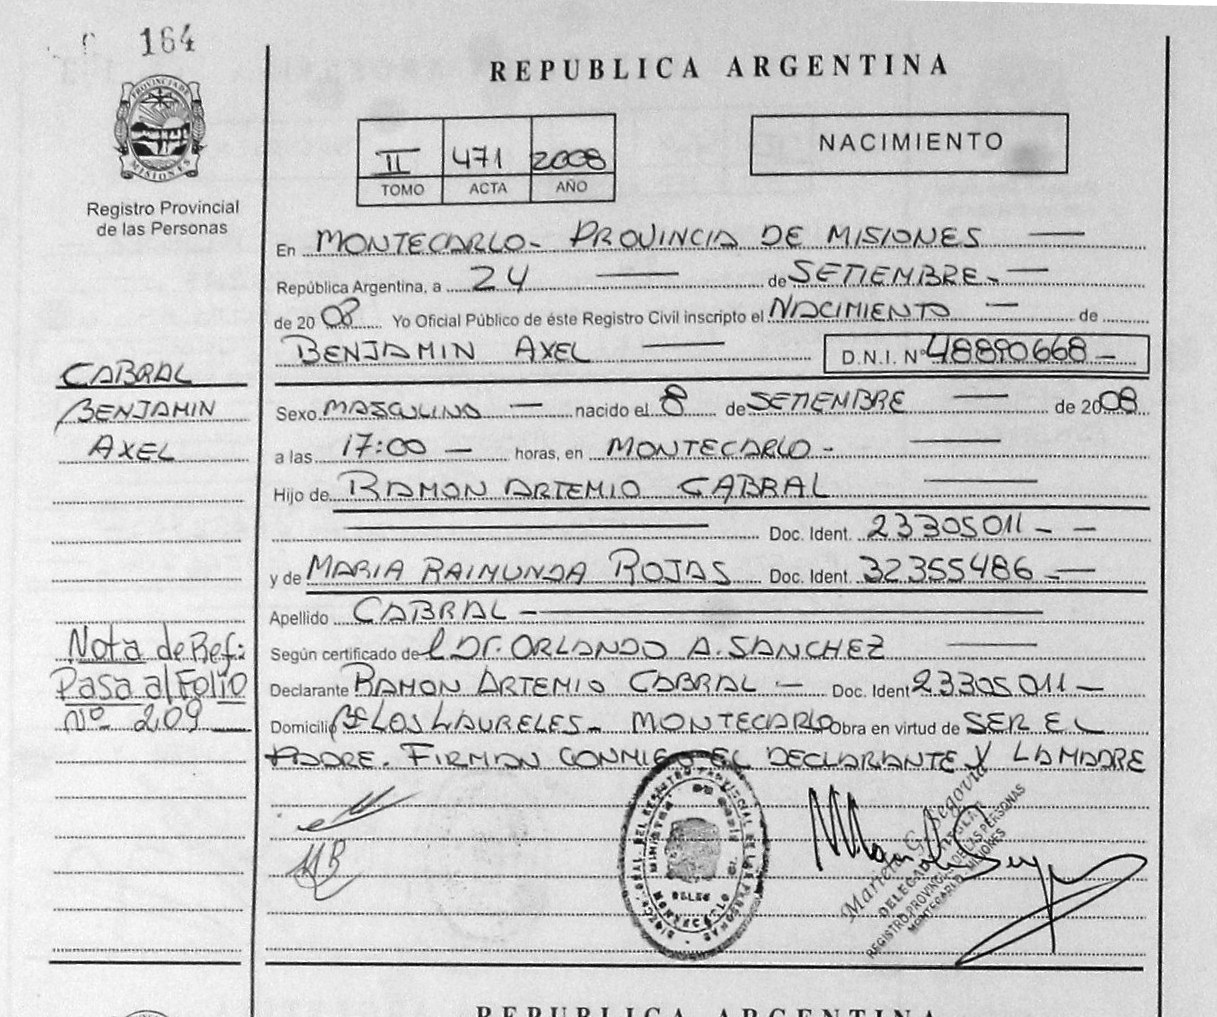 164
PROVINCIA DE
MISIONES
Registro Provincial
de las Personas
REPUBLICA ARGENTINA
II 471 2008
TOMO ACTA AÑO
NACIMIENTO
En MONTECARLO - PROVINCIA DE MISIONES —
República Argentina, a 24 — de SETIEMBRE - —
de 2008 Yo Oficial Público de éste Registro Civil inscripto el NACIMIENTO — de
BENJAMIN AXEL — D.N.I. Nº 48890668 -
Sexo MASCULINO — nacido el 8 de SETIEMBRE — de 2008
a las 17:00 — horas, en MONTECARLO - —
Hijo de RAMON ARTEMIO CABRAL —
— Doc. Ident. 23305011 - —
y de MARIA RAIMUNDA ROJAS Doc. Ident. 32355486 - —
Apellido CABRAL - —
Según certificado de l Dr. ORLANDO A. SANCHEZ —
Declarante RAMON ARTEMIO CABRAL - — Doc. Ident 23305011 —
Domicilio Bº LOS LAURELES - MONTECARLO Obra en virtud de SER EL
PADRE. FIRMAN CONMIGO EL DECLARANTE Y LA MADRE
CABRAL
BENJAMIN
AXEL
Nota de Ref:
Pasa al Folio
Nº 209
MB
Mariela G. Segovia
REGISTRO PROVINCIAL DE LAS PERSONAS
MONTECARLO, MISIONES
REPUBLICA ARGENTINA